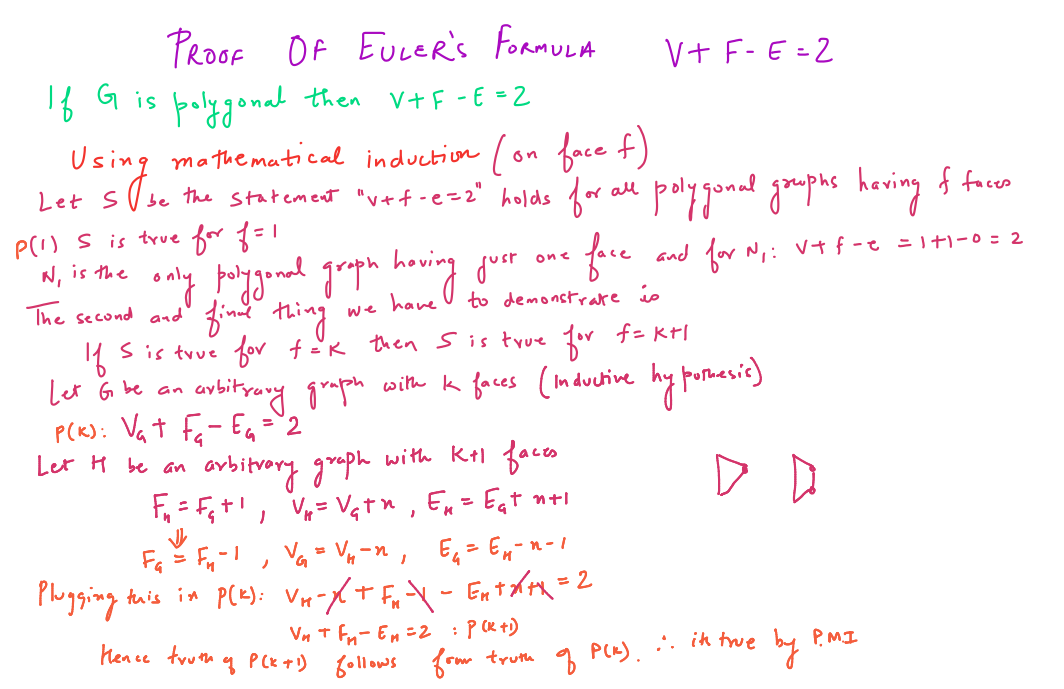 PROOF OF EULER'S FORMULA V+ F- E = 2
If G is polygonal then V+F-E=2
Using mathematical induction (on face f)
Let S be the statement "v+f-e=2" holds for all polygonal graphs having f faces
P(1) S is true for f=1
N₁ is the only polygonal graph having just one face and for N₁: v+f-e = 1+1-0 = 2
The second and final thing we have to demonstrate is
If S is true for f=k then S is true for f=k+1
Let G be an arbitrary graph with k faces (Inductive hypothesis)
P(k): V_G + F_G - E_G = 2
Let H be an arbitrary graph with k+1 faces
F_H = F_G+1, V_H = V_G+n, E_H = E_G+n+1
⇓
F_G = F_H-1, V_G = V_H-n, E_G = E_H-n-1
Plugging this in P(k): V_H-n + F_H-1 - E_H+n+1 = 2
V_H + F_H - E_H = 2 : P(k+1)
Hence truth of P(k+1) follows from truth of P(k). ∴ it true by P.M.I